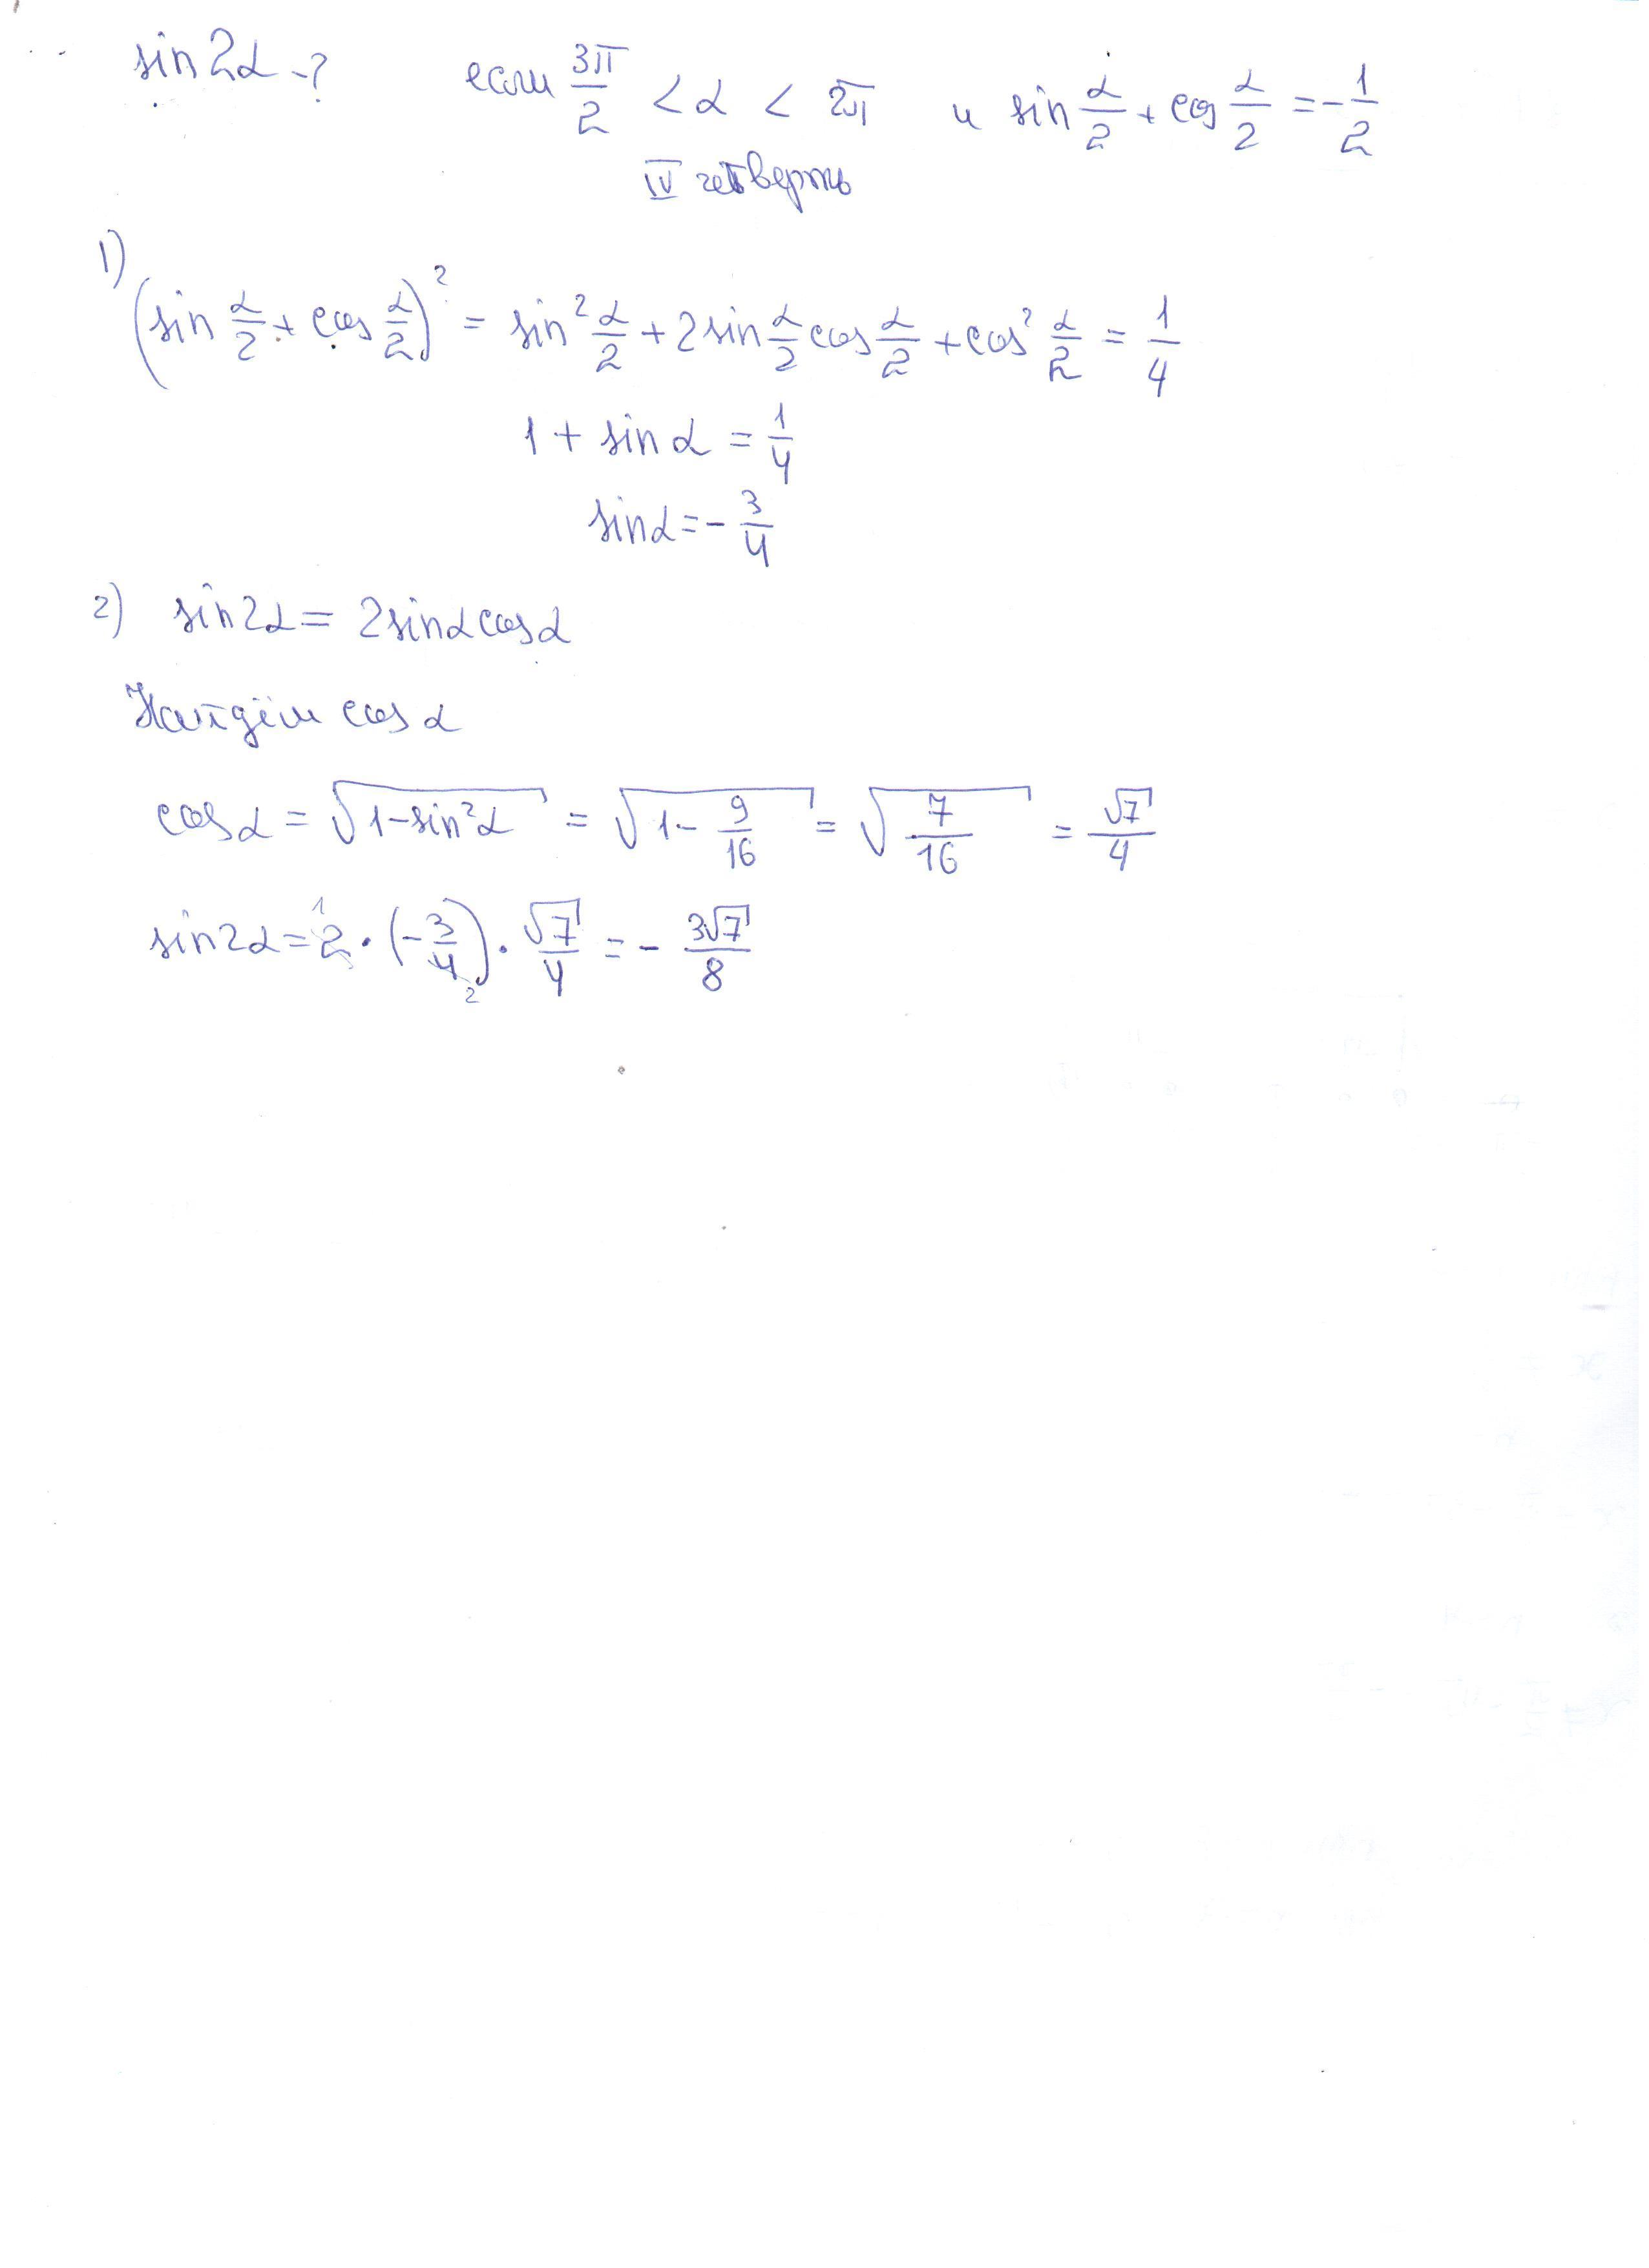 sin2α -? если 3π/2 < α < 2π и sin α/2 + cos α/2 = -1/2
IV четверть
1)
(sin α/2 + cos α/2)² = sin² α/2 + 2 sin α/2 cos α/2 + cos² α/2 = 1/4
1 + sin α = 1/4
sin α = - 3/4
2) sin2α = 2sinα cosα
Найдём cos α
cos α = √(1-sin²α) = √(1- 9/16) = √(7/16) = √7/4
sin2α = 2 · (-3/4) · √7/4 = - 3√7/8